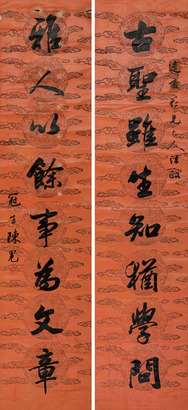 古聖雖生知猶學問
雅人以餘事為文章
冠生陳冕